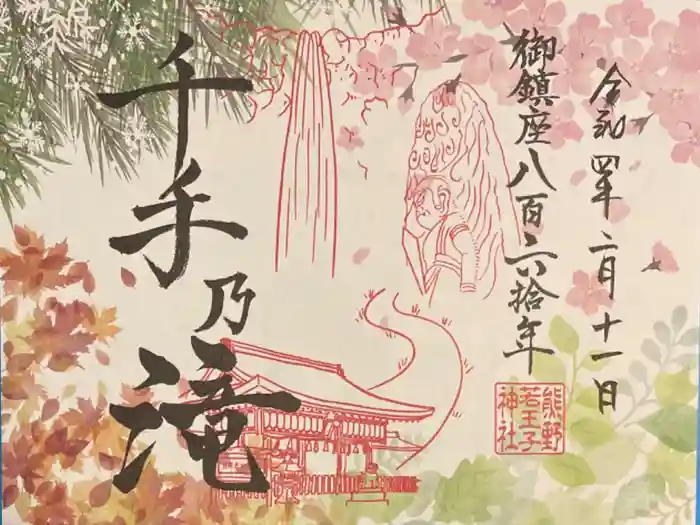 令和四年二月十一日
御鎮座八百六拾年
千手乃滝
熊野
若王子
神社